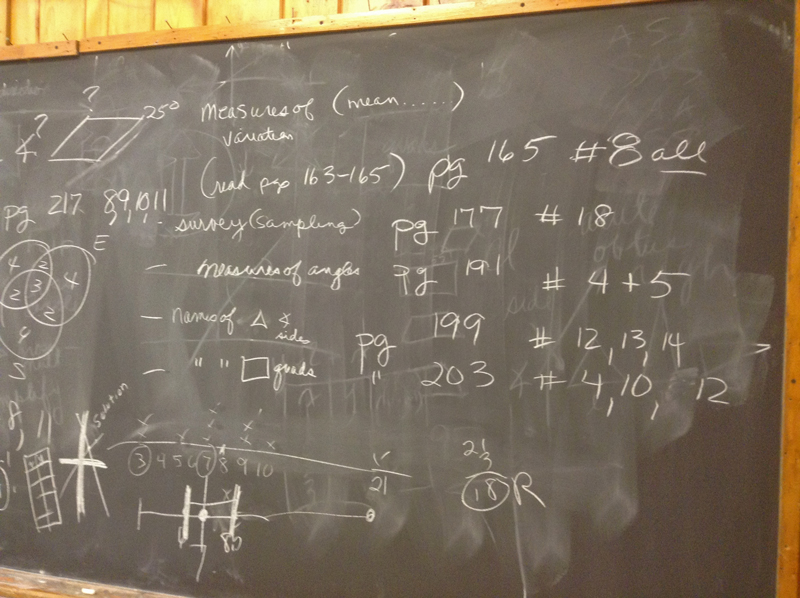 ?
25°
Measures of (mean.....)
variation
?
(read pgs 163-165) pg 165 #8 all
pg 217 8,9,10,11
- survey (sampling) pg 177 # 18
E
4 2 4
- measures of angles pg 191 # 4 + 5
2 3 2
4
- names of △ ∢ sides pg 199 # 12, 13, 14
S
- " " □ quads " 203 # 4, 10, 12
Solution
x x x x x x x x
3 4 5 6 7 8 9 10 21
21
3
18 R
7